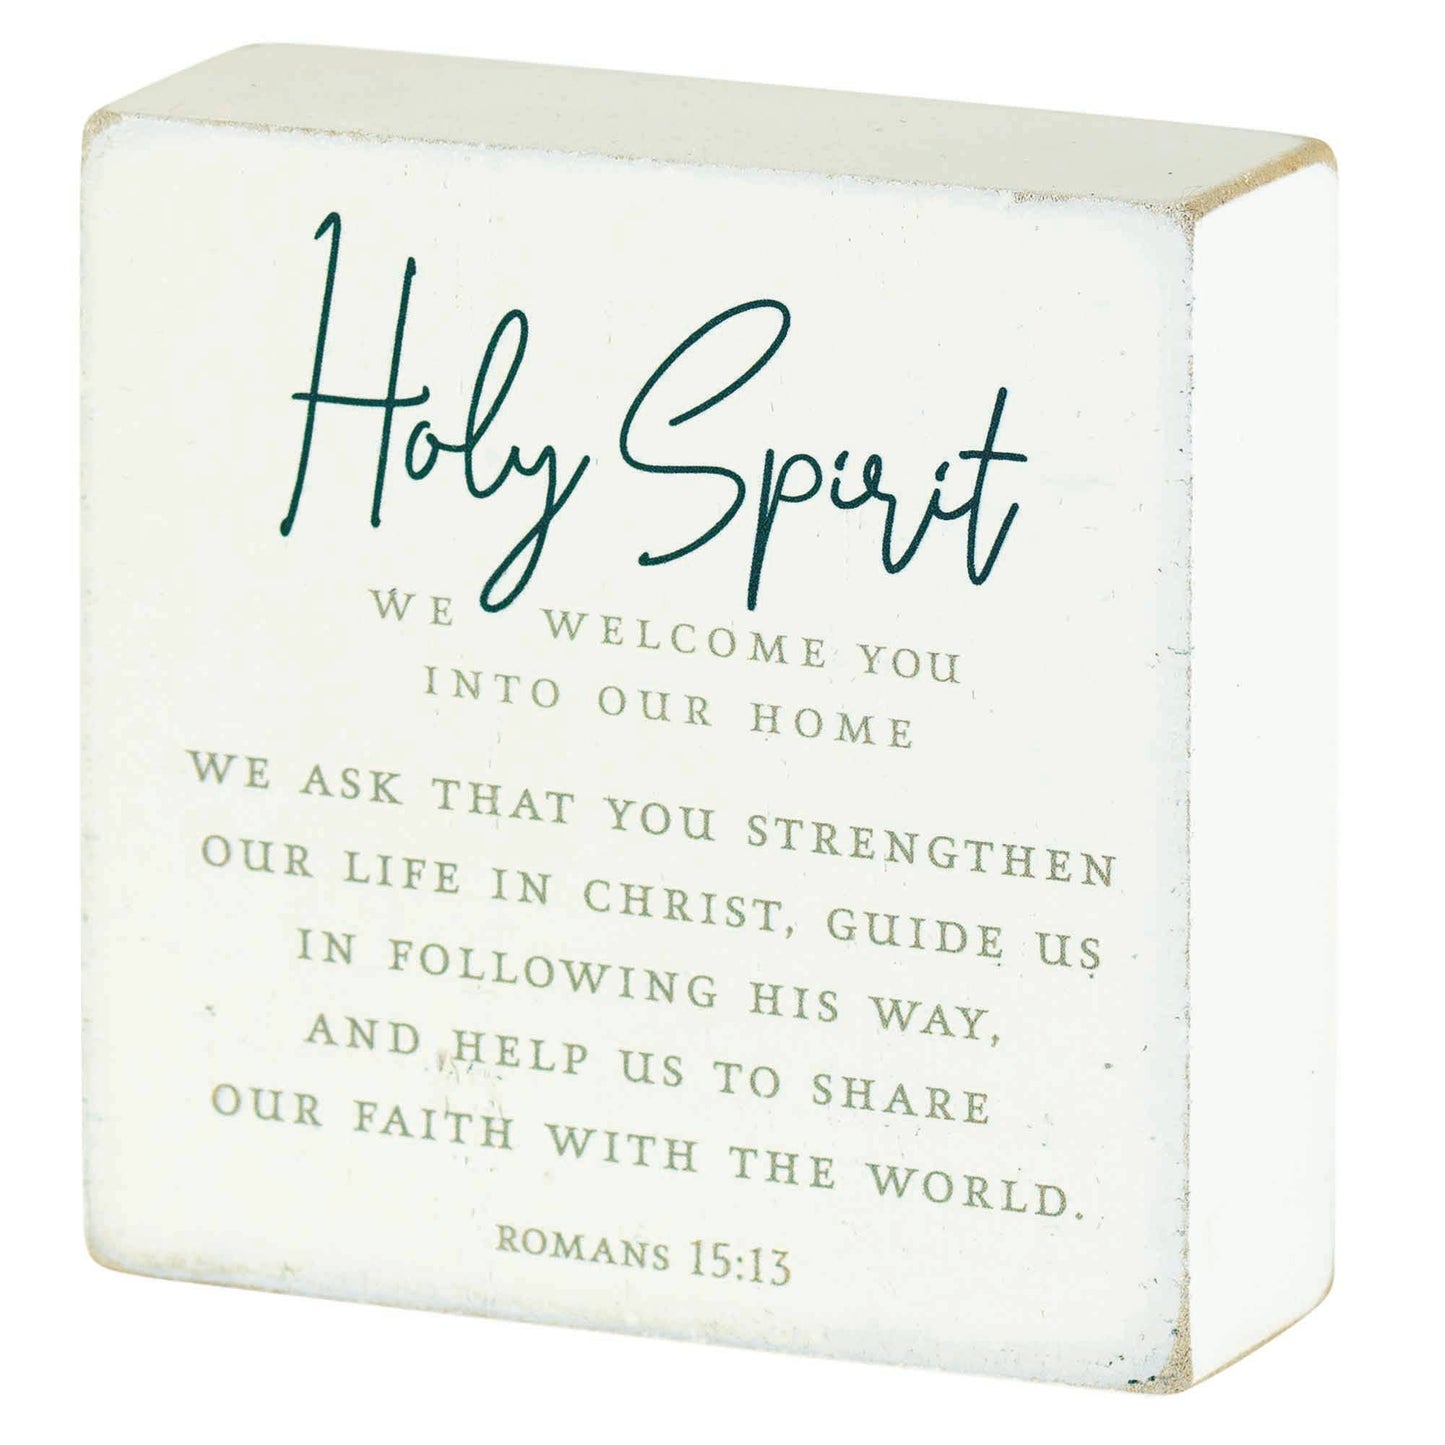 Holy Spirit
WE WELCOME YOU
INTO OUR HOME
WE ASK THAT YOU STRENGTHEN
OUR LIFE IN CHRIST, GUIDE US
IN FOLLOWING HIS WAY,
AND HELP US TO SHARE
OUR FAITH WITH THE WORLD.
ROMANS 15:13